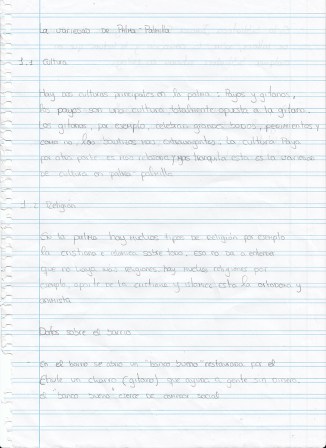 La variedad de Palma-Palmilla
1.1 Cultura
Hay dos culturas principales en la palma: Payos y gitanos,
los payos son una cultura totalmente opuesta a la gitana.
Los gitanos, por ejemplo, celebran grandes bodas, pedimientos y
como no, los bautizos más extravagantes. La cultura Paya
por otra parte es más y más tranquila esta es la variedad
de cultura en palma palmilla
1.2 Religión
En la palma hay muchos tipos de religión por ejemplo
la cristiana e islamica sobre todo, eso no da a entender
que no haya más religiones hay muchas religiones por
ejemplo aparte de la cristiana y islamica esta la ortodoxa y
Datos sobre el barrio
En el barrio se abrio un "banco bueno" restaurada por el
Chule un (gitano) que ayuda a gente sin dinero,
el "banco bueno" cierre de comedor social